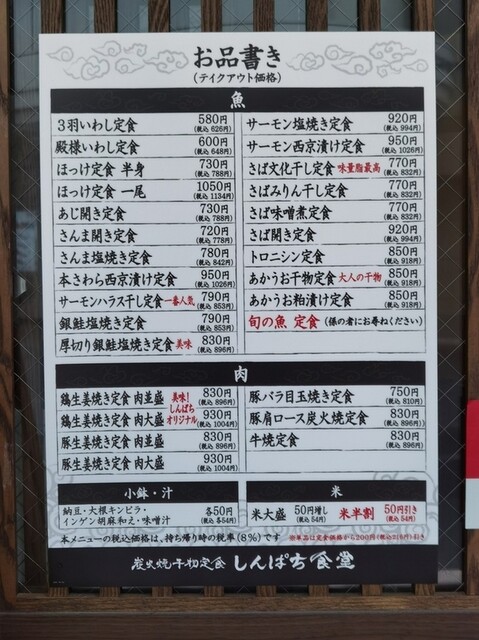 お品書き
(テイクアウト価格)
魚
3羽いわし定食 580円 (税込 626円)
殿様いわし定食 600円 (税込 648円)
ほっけ定食 半身 730円 (税込 788円)
ほっけ定食 一尾 1050円 (税込 1134円)
あじ開き定食 730円 (税込 788円)
さんま開き定食 720円 (税込 778円)
さんま塩焼き定食 780円 (税込 842円)
本さわら西京漬け定食 950円 (税込 1026円)
サーモンハラス干し定食 一番人気 790円 (税込 853円)
銀鮭塩焼き定食 790円 (税込 853円)
厚切り銀鮭塩焼き定食 美味 830円 (税込 896円)
サーモン塩焼き定食 920円 (税込 994円)
サーモン西京漬け定食 950円 (税込 1026円)
さば文化干し定食 味量脂最高 770円 (税込 832円)
さばみりん干し定食 770円 (税込 832円)
さば味噌煮定食 770円 (税込 832円)
さば開き定食 920円 (税込 994円)
トロニシン定食 850円 (税込 918円)
あかうお干物定食 大人の干物 850円 (税込 918円)
あかうお粕漬け定食 850円 (税込 918円)
旬の魚 定食 (係の者にお尋ねください)
肉
鶏生姜焼き定食 肉並盛 830円 (税込 896円)
鶏生姜焼き定食 肉大盛 930円 (税込 1004円)
美味!
しんぱち
オリジナル
豚生姜焼き定食 肉並盛 830円 (税込 896円)
豚生姜焼き定食 肉大盛 930円 (税込 1004円)
豚バラ目玉焼き定食 750円 (税込 810円)
豚肩ロース炭火焼定食 830円 (税込 896円)
牛焼定食 830円 (税込 896円)
小鉢・汁
納豆・大根キンピラ・
インゲン胡麻和え・味噌汁
各50円 (税込 各54円)
米
米大盛 50円増し (税込 54円)
米半割 50円引き (税込 54円)
本メニューの税込価格は、持ち帰り時の税率(8%)です
※単品は定食価格から200円(税込216円)引き
炭火焼干物定食 しんぱち食堂